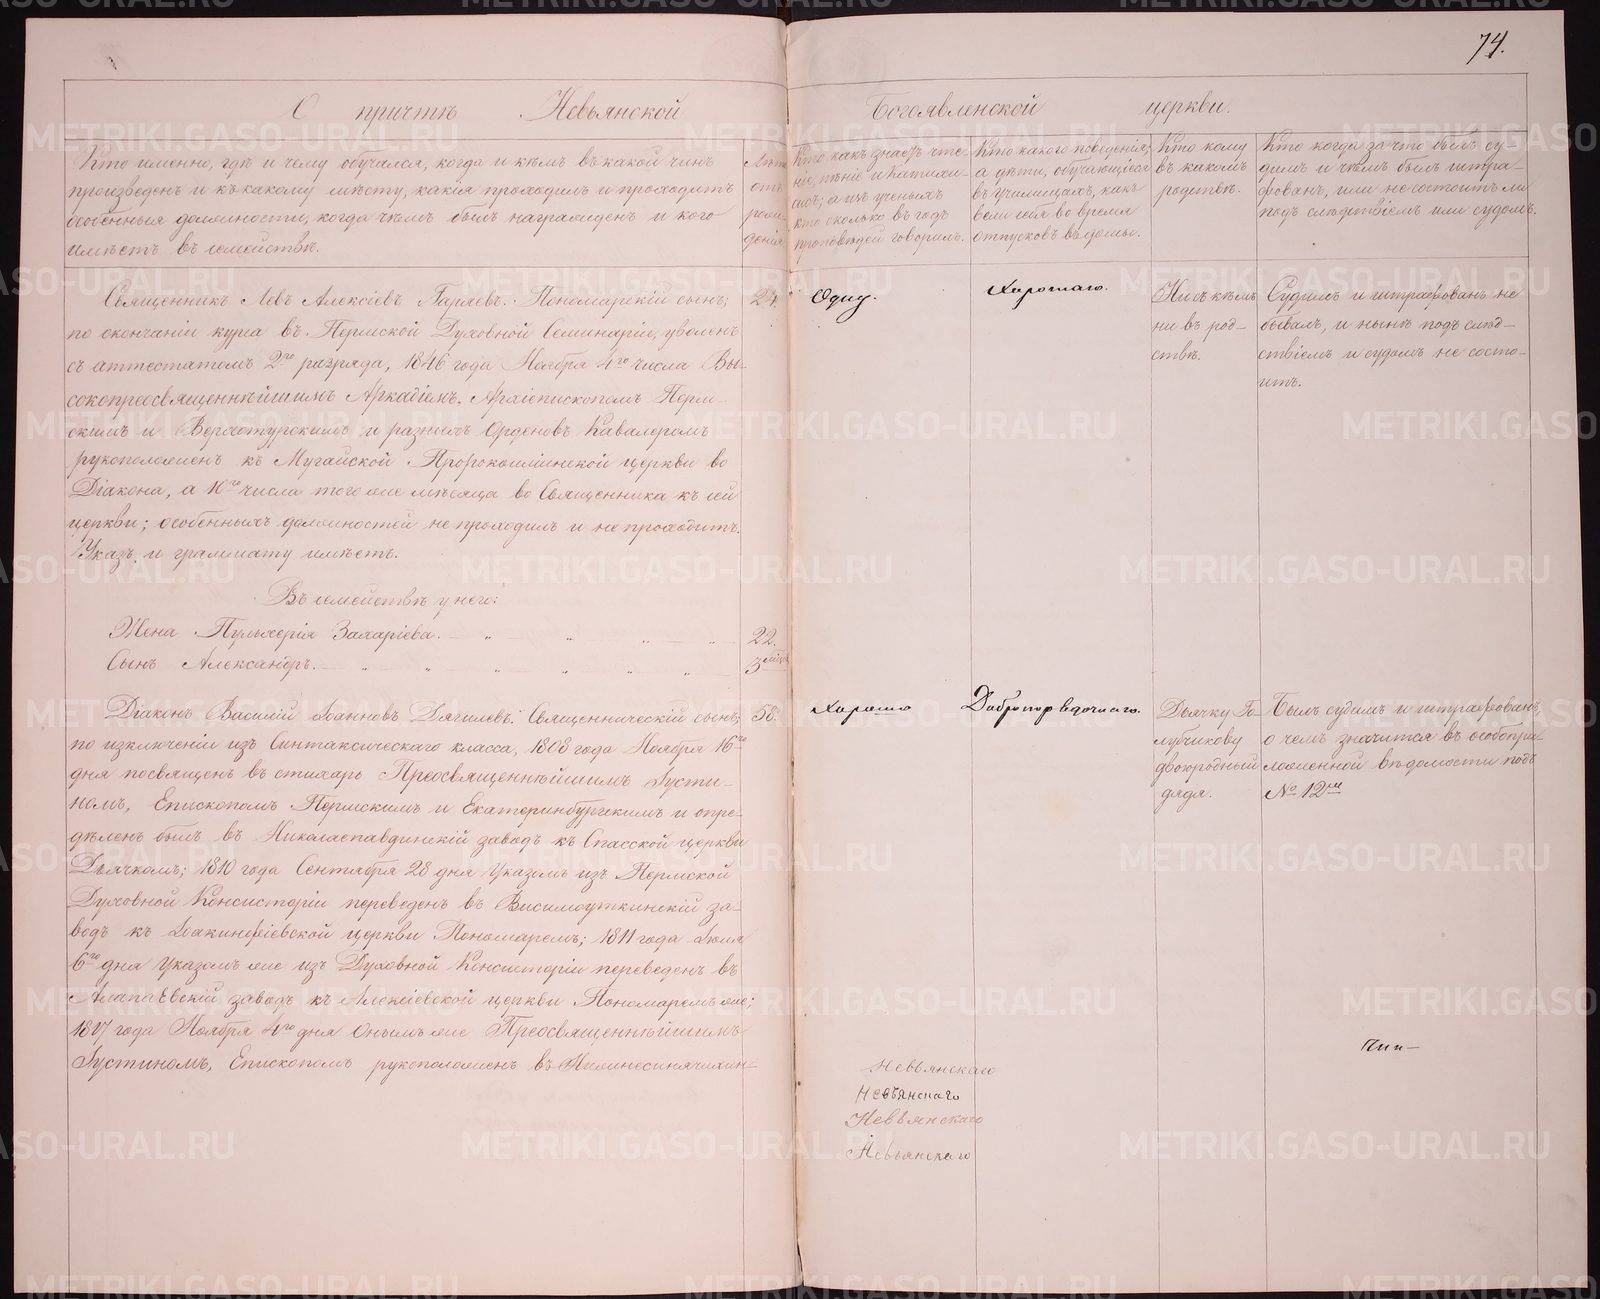 74.
О причтѣ Невьянской Богоявленской церкви.
Кто именно, гдѣ и чему обучался, когда и кѣмъ въ какой чинъ
произведенъ и къ какому мѣсту, какія проходилъ и проходитъ
особенныя должности, когда чѣмъ былъ награжденъ и кого
имѣетъ въ семействѣ.
Лѣта
отъ
рож-
денія
Кто какъ знаетъ чте-
ніе, пѣніе и катихи-
сисъ; а изъ ученыхъ
кто сколько въ годъ
проповѣдей говорилъ.
Кто какого поведенія;
а дѣти, обучающіеся
въ училищахъ, какъ
вели себя во время
отпусковъ въ домы.
Кто кому
въ какомъ
родствѣ.
Кто когда за что былъ су-
димъ и чѣмъ былъ штра-
фованъ, или не состоитъ ли
подъ слѣдствіемъ или судомъ.
Священникъ Левъ Алексіевъ Гаряевъ. Пономарскій сынъ;
по окончаніи курса въ Пермской Духовной Семинаріи, уволенъ
съ аттестатомъ 2го разряда, 1846 года Ноября 4го числа Вы-
сокопреосвященнѣйшимъ Аркадіемъ, Архіепископомъ Перм-
скимъ и Верхотурскимъ и разныхъ Орденовъ Кавалеромъ
рукоположенъ къ Мугайской Пророкоильинской церкви во
Діакона, а 10го числа того же мѣсяца во Священника къ сей
церкви; особенныхъ должностей не проходилъ и не проходитъ.
Указъ и граммату имѣетъ.
24.
Одну.
Хорошаго.
Ни съ кѣмъ
ни въ род-
ствѣ.
Судимъ и штрафованъ не
бывалъ, и нынѣ подъ слѣд-
ствіемъ и судомъ не состо-
итъ.
Въ семействѣ у него:
Жена Пульхерія Захаріева. — „ — „ — „ — „ 22.
Сынъ Александръ. — „ — „ — „ — „ — „ — „ 3 мѣсц.
Діаконъ Василій Іоанновъ Дягилевъ. Священническій сынъ;
по изключеніи изъ Синтаксическаго класса, 1808 года Ноября 16го
дня посвященъ въ стихарь Преосвященнѣйшимъ Іусти-
номъ, Епископомъ Пермскимъ и Екатеринбургскимъ и опре-
дѣленъ былъ въ Николаепавдинскій заводъ къ Спасской церкви
Дьячкомъ; 1810 года Сентября 28 дня Указомъ изъ Пермской
Духовной Консисторіи переведенъ въ Висимоуткинскій за-
водъ къ Іоакинфіевской церкви Пономаремъ; 1811 года Іюля
6го дня Указомъ же изъ Духовной Консисторіи переведенъ въ
Алапаевскій заводъ къ Алексіевской церкви Пономаремъ же;
1817 года Ноября 4го дня Онымъ же Преосвященнѣйшимъ
Іустиномъ, Епископомъ рукоположенъ въ Нижнесинячихин-
58.
Хорошо
Добропорядочнаго.
Дьячку Го-
лубчикову
двоюродный
дядя.
Былъ судимъ и штрафованъ,
о чемъ значится въ особопри-
ложенной вѣдомости подъ
№ 12мъ
Чин-
Невьянскаго
Невьянскаго
Невьянскаго
Невьянскаго
METRIKI.GASO-URAL.RU